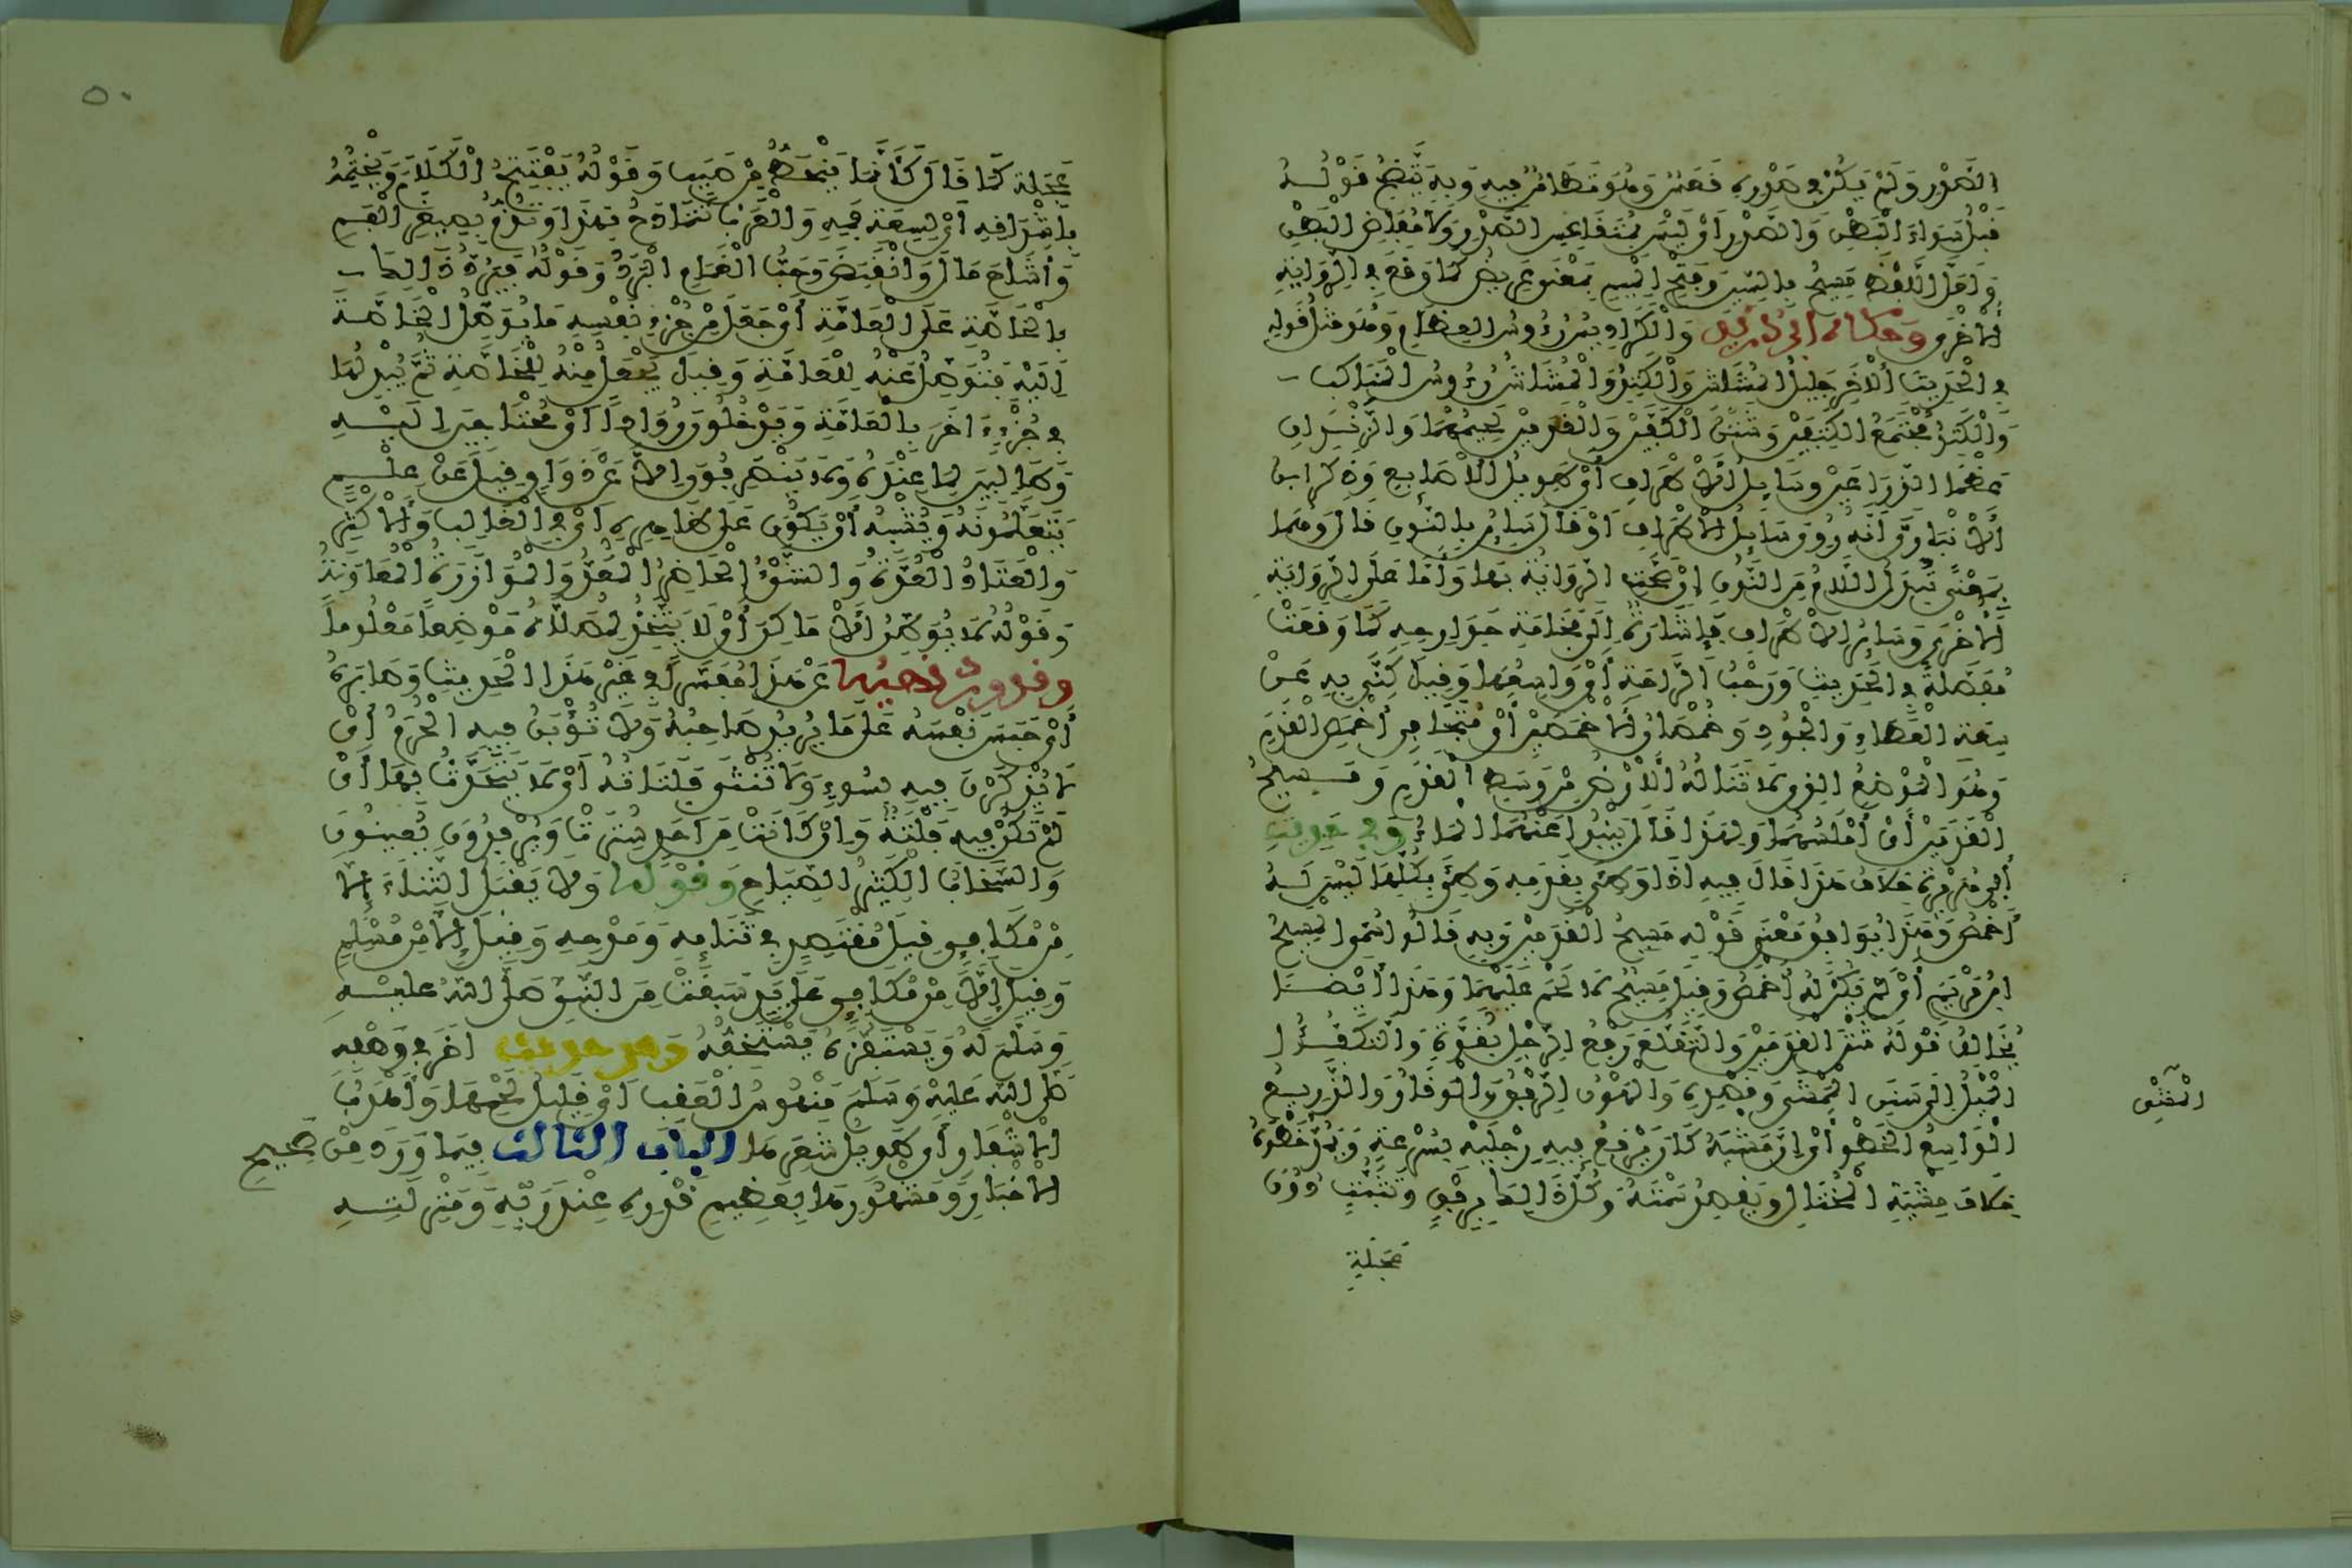 الصَّدْرِ وَلَمْ يَكُنْ فِي صَدْرِهِ قَعَسٌ وَهُوَ تَطَامُنٌ فِيهِ وَبِهِ يَتَّضِحُ قَوْلُهُ
قَبْلُ سَوَاءَ الْبَطْنِ وَالصَّدْرِ أَوْ لَيْسَ بِمُتَقَاعِسِ الصَّدْرِ وَلَا مُفَاضِ الْبَطْنِ
وَلَعَلَّ اللَّفْظَ مَسِيحُ بِالسِّينِ وَفَتْحِ الْمِيمِ بِمَعْنَى عَرِيضٍ كَمَا وَقَعَ فِي الرِّوَايَةِ
الْأُخْرَى وَحَكَاهُ ابْنُ دُرَيْدٍ وَالْكَرَادِيسُ رُءُوسُ الْعِظَامِ وَهُوَ مِثْلُ قَوْلِهِ
فِي الْحَدِيثِ الْآخَرِ جَلِيلُ الْمُشَاشِ وَالْكَتَدِ وَالْمُشَاشُ رُءُوسُ الْمَنَاكِبِ
وَالْكَتَدُ مُجْتَمَعُ الْكَتِفَيْنِ وَشَثْنُ الْكَفَّيْنِ وَالْقَدَمَيْنِ لَحِيمُهُمَا وَالزَّنْدَانِ
عَظْمَا الذِّرَاعَيْنِ وَسَايِلُ الْأَطْرَافِ أَيْ طَوِيلُ الْأَصَابِعِ وَذَكَرَ ابْنُ
الْأَنْبَارِيِّ أَنَّهُ رُوِيَ سَايِلُ الْأَطْرَافِ أَوْ قَالَ سَايِنُ بِالنُّونِ قَالَ وَهُمَا
بِمَعْنًى تُبْدَلُ اللَّامُ مِنَ النُّونِ إِنْ صَحَّتِ الرِّوَايَةُ بِهَا وَأَمَّا عَلَى الرِّوَايَةِ
الْأُخْرَى وَسَائِرُ الْأَطْرَافِ فَإِشَارَةٌ إِلَى فَخَامَةِ جَوَارِحِهِ كَمَا وَقَعَتْ
مُفَصَّلَةً فِي الْحَدِيثِ وَرَحْبُ الرَّاحَةِ أَيْ وَاسِعُهَا وَقِيلَ كَنَّى بِهِ عَنْ
سَعَةِ الْعَطَاءِ وَالْجُودِ وَخُمْصَانُ الْأَخْمَصَيْنِ أَيْ مُتَجَافِي أَخْمَصِ الْقَدَمِ
وَهُوَ الْمَوْضِعُ الَّذِي لَا تَنَالُهُ الْأَرْضُ مِنْ وَسَطِ الْقَدَمِ وَمَسِيحُ
الْقَدَمَيْنِ أَيْ أَمْلَسُهُمَا وَلِهَذَا قَالَ يَنْبُوا عَنْهُمَا الْمَاءُ وَفِي حَدِيثِ
أَبِي هُرَيْرَةَ خِلَافُ هَذَا قَالَ فِيهِ إِذَا وَطِئَ بِقَدَمِهِ وَطِئَ بِكُلِّهَا لَيْسَ لَهُ
أَخْمَصُ وَهَذَا يُوَافِقُ مَعْنَى قَوْلِهِ مَسِيحُ الْقَدَمَيْنِ وَبِهِ قَالُوا سُمِّيَ الْمَسِيحُ
ابْنُ مَرْيَمَ أَيْ لَمْ يَكُنْ لَهُ أَخْمَصُ وَقِيلَ مَسِيحُ لَا لَحْمَ عَلَيْهِمَا وَهَذَا أَيْضًا
يُخَالِفُ قَوْلَهُ شَثْنَ الْقَدَمَيْنِ وَالتَّقَلُّعُ رَفْعُ الرِّجْلِ بِقُوَّةٍ وَالتَّكَفُّؤُ
الْمَيْلُ إِلَى سَنَنِ الْمَمْشَى وَقَصْدِهِ وَالْهَوْنُ الرِّفْقُ وَالْوَقَارُ وَالذَّرِيعُ
الْمَشْيِ
الْوَاسِعُ الْخَطْوِ أَيْ إِنَّ مَشْيَهُ كَانَ يَرْفَعُ فِيهِ رِجْلَيْهِ بِسُرْعَةٍ وَيَمُدُّ خَطْوَهُ
خِلَافَ مِشْيَةِ الْمُخْتَالِ وَيَقْصِدُ سَمْتَهُ وَكُلُّ ذَلِكَ بِرِفْقٍ وَتَثَبُّتٍ دُونَ
عَجَلَةٍ
٥٠
عَجَلَةٍ كَمَا قَالَ كَأَنَّمَا يَنْحَطُّ مِنْ صَبَبٍ وَقَوْلُهُ يَفْتَتِحُ الْكَلَامَ وَيَخْتِمُهُ
بِأَشْدَاقِهِ أَيْ لِسَعَةِ فَمِهِ وَالْعَرَبُ تَتَمَادَحُ بِهَذَا وَتَذُمُّ بِصِغَرِ الْفَمِ
وَأَشَاحَ مَالَ وَانْقَبَضَ وَحَبُّ الْغَمَامِ الْبَرَدُ وَقَوْلُهُ فَيَرُدُّ ذَلِكَ
بِالْخَاصَّةِ عَلَى الْعَامَّةِ أَيْ جَعَلَ مِنْ جُزْءِ نَفْسِهِ مَا يُوصِلُ الْخَاصَّةَ
إِلَيْهِ فَتُوصِلُ عَنْهُ لِلْعَامَّةِ وَقِيلَ يَجْعَلُ مِنْهُ لِلْخَاصَّةِ ثُمَّ يُبْدِلُهَا
فِي جُزْءٍ ءَاخَرَ بِالْعَامَّةِ وَيَدْخُلُونَ رُوَّادًا أَيْ مُحْتَاجِينَ إِلَيْهِ
وَطَالِبِينَ لِمَا عِنْدَهُ وَلَا يَنْصَرِفُونَ إِلَّا عَنْ ذَوَاقٍ قِيلَ عَنْ عِلْمٍ
يَتَعَلَّمُونَهُ وَيُشْبِهُ أَنْ يَكُونَ عَلَى ظَاهِرِهِ أَيْ فِي الْغَالِبِ وَالْأَكْثَرِ
وَالْعَتَادُ الْعُدَّةُ وَالشَّيْءُ الْحَاضِرُ الْمُعَدُّ وَالْمُوَازَرَةُ الْمُعَاوَنَةُ
وَقَوْلُهُ لَا يُوطِنُ الْأَمَاكِنَ أَيْ لَا يَتَّخِذُ لِمُصَلَّاهُ مَوْضِعًا مَعْلُومًا
وَقَدْ وَرَدَ نَهْيُهُ عَنْ هَذَا مُفَسَّرًا فِي غَيْرِ هَذَا الْحَدِيثِ وَصَابَرَهُ
أَيْ حَبَسَ نَفْسَهُ عَلَى مَا يُرِيدُ صَاحِبُهُ وَلَا تُؤْبَنُ فِيهِ الْحُرَمُ أَيْ
لَا يُذْكَرْنَ فِيهِ بِسُوءٍ وَلَا تُنْثَى فَلَتَاتُهُ أَيْ لَا يُتَحَدَّثُ بِهَا أَيْ
لَمْ تَكُنْ فِيهِ فَلْتَةٌ وَإِنْ كَانَتْ مِنْ أَحَدٍ سُتِرَتْ وَيُرْفِدُونَ يُعِينُونَ
وَالسَّخَّابُ الْكَثِيرُ الصِّيَاحِ وَقَوْلُهُ وَلَا يَقْبَلُ الثَّنَاءَ إِلَّا
مِنْ مُكَافِئٍ قِيلَ مُقْتَصِدٍ فِي ثَنَائِهِ وَمَدْحِهِ وَقِيلَ إِلَّا مِنْ مُسْلِمٍ
وَقِيلَ إِلَّا مِنْ مُكَافِئٍ عَلَى يَدٍ سَبَقَتْ مِنَ النَّبِيِّ صَلَّى اللَّهُ عَلَيْهِ
وَسَلَّمَ لَهُ وَيَسْتَفِزُّهُ يَسْتَخِفُّهُ وَفِي حَدِيثٍ آخَرَ فِي وَصْفِهِ
صَلَّى اللَّهُ عَلَيْهِ وَسَلَّمَ مَنْهُوسُ الْعَقِبِ أَيْ قَلِيلُ لَحْمِهَا وَأَهْدَبُ
الْأَشْفَارِ أَيْ طَوِيلُ شَعَرِهَا الْبَابُ الثَّالِثُ فِيمَا وَرَدَ مِنْ صَحِيحِ
الْأَخْبَارِ وَمَشْهُورِهَا بِعَظِيمِ قَدْرِهِ عِنْدَ رَبِّهِ وَمَنْزِلَتِهِ